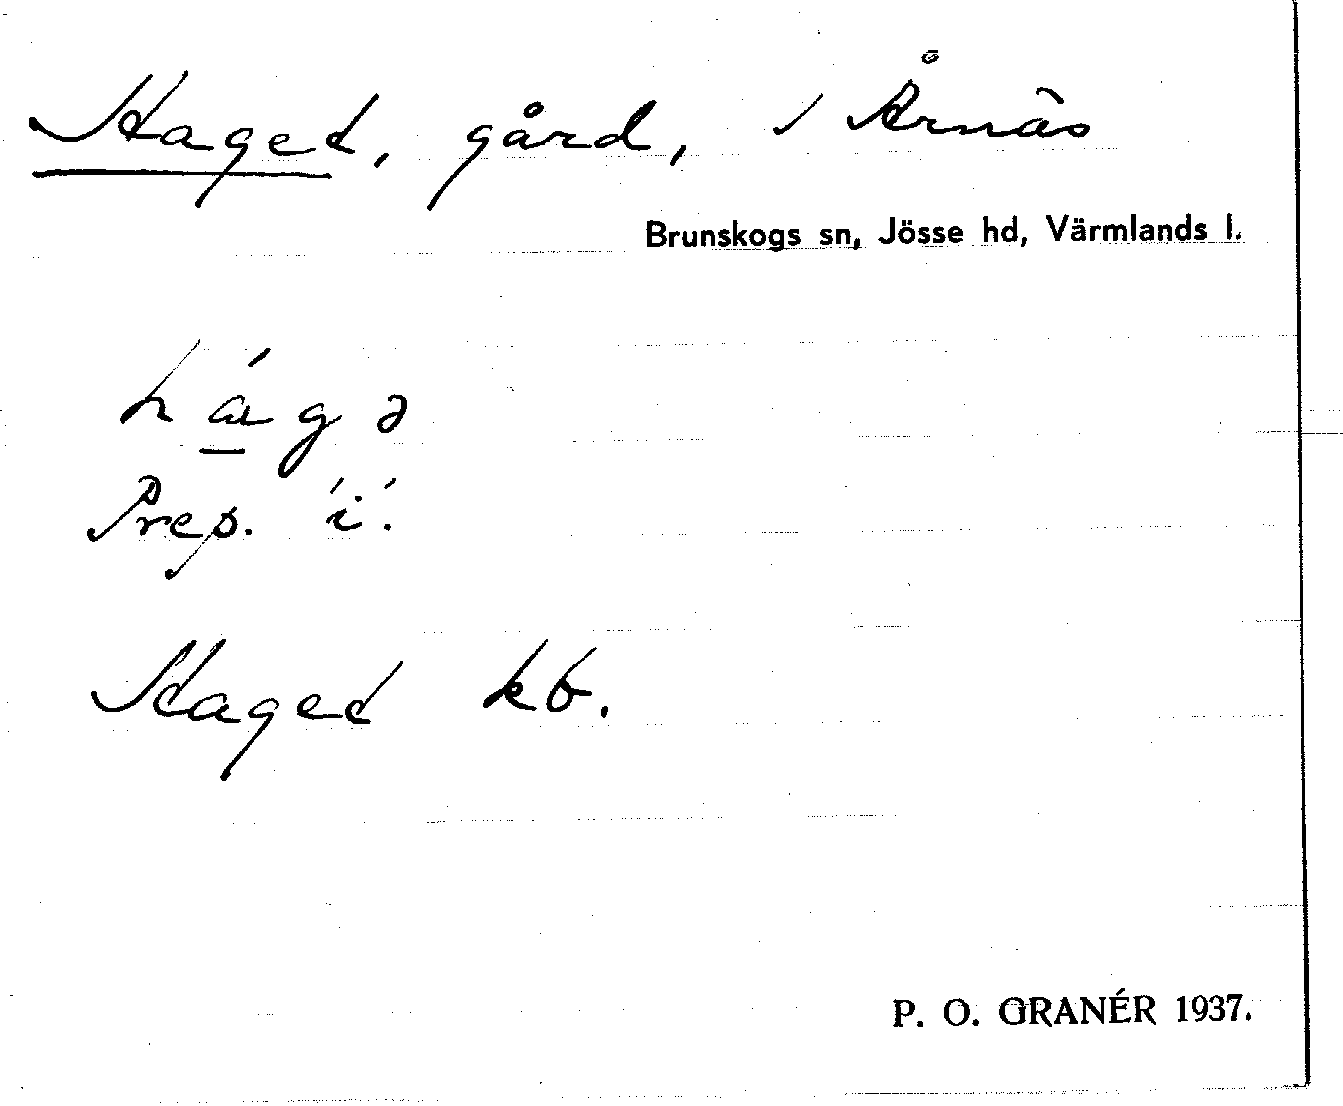 Haget, gård, i Årnäs
Brunskogs sn, Jösse hd, Värmlands l.
hág ə
Prep. 'i'.
Haget kb.
P. O. GRANÉR 1937.